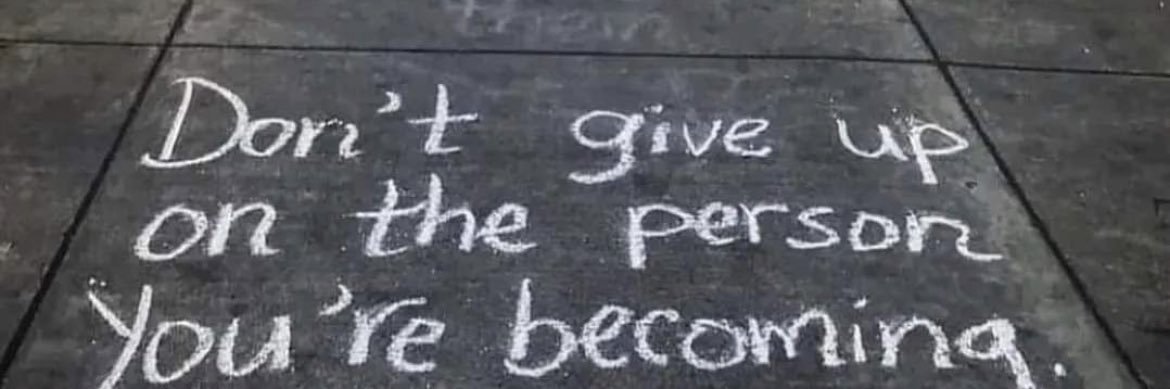 Don't give up
on the person
you're becoming.